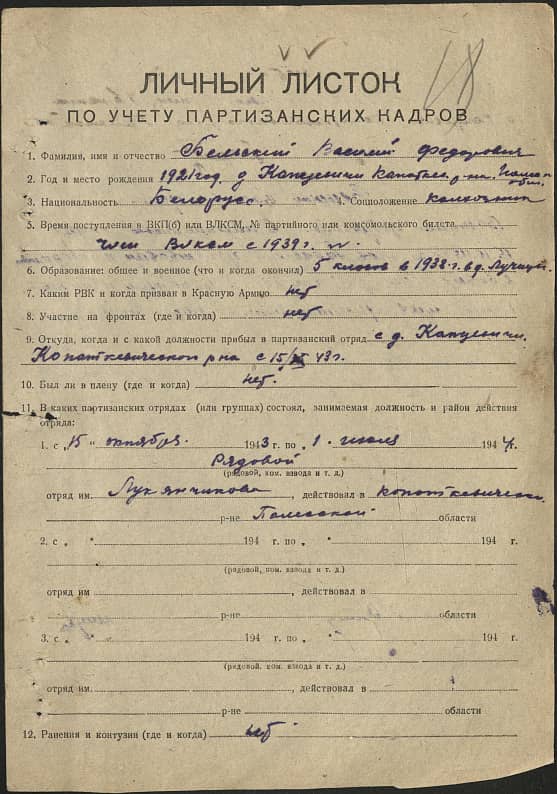 18
ЛИЧНЫЙ ЛИСТОК
ПО УЧЕТУ ПАРТИЗАНСКИХ КАДРОВ
1. Фамилия, имя и отчество Бельский Василий Федорович
2. Год и место рождения 1921 год. д Капцевичи Копаткев. р-на.
3. Национальность Белорус. 4. Соцположение колхозник
5. Время поступления в ВКП(б) или ВЛКСМ, № партийного или комсомольского билета
член Влксм с 1939 г.
6. Образование: общее и военное (что и когда окончил) 5 класов в 1938 г. в д.
7. Каким РВК и когда призван в Красную Армию нет
8. Участие на фронтах (где и когда) нет
9. Откуда, когда и с какой должности прибыл в партизанский отряд с д. Капцевичи.
Копаткевического р-на с 15/ 43 г.
10. Был ли в плену (где и когда) нет.
11. В каких партизанских отрядах (или группах) состоял, занимаемая должность и район действия
отряда:
1. с „15" октября. 1943 г. по „1. июля 1944 г.
Рядовой
(рядовой, ком. взвода и т. д.)
отряд им. Лукянчикова, действовал в копаткевическом.
р-не Полесской области
2. с „ " 194 г. по „ " 194 г.
(рядовой, ком. взвода и т. д.)
отряд им , действовал в
р-не области
3. с „ " 194 г. по „ " 194 г.
(рядовой, ком. взвода и т. д.)
отряд им. , действовал в
р-не области
12. Ранения и контузии (где и когда) нет